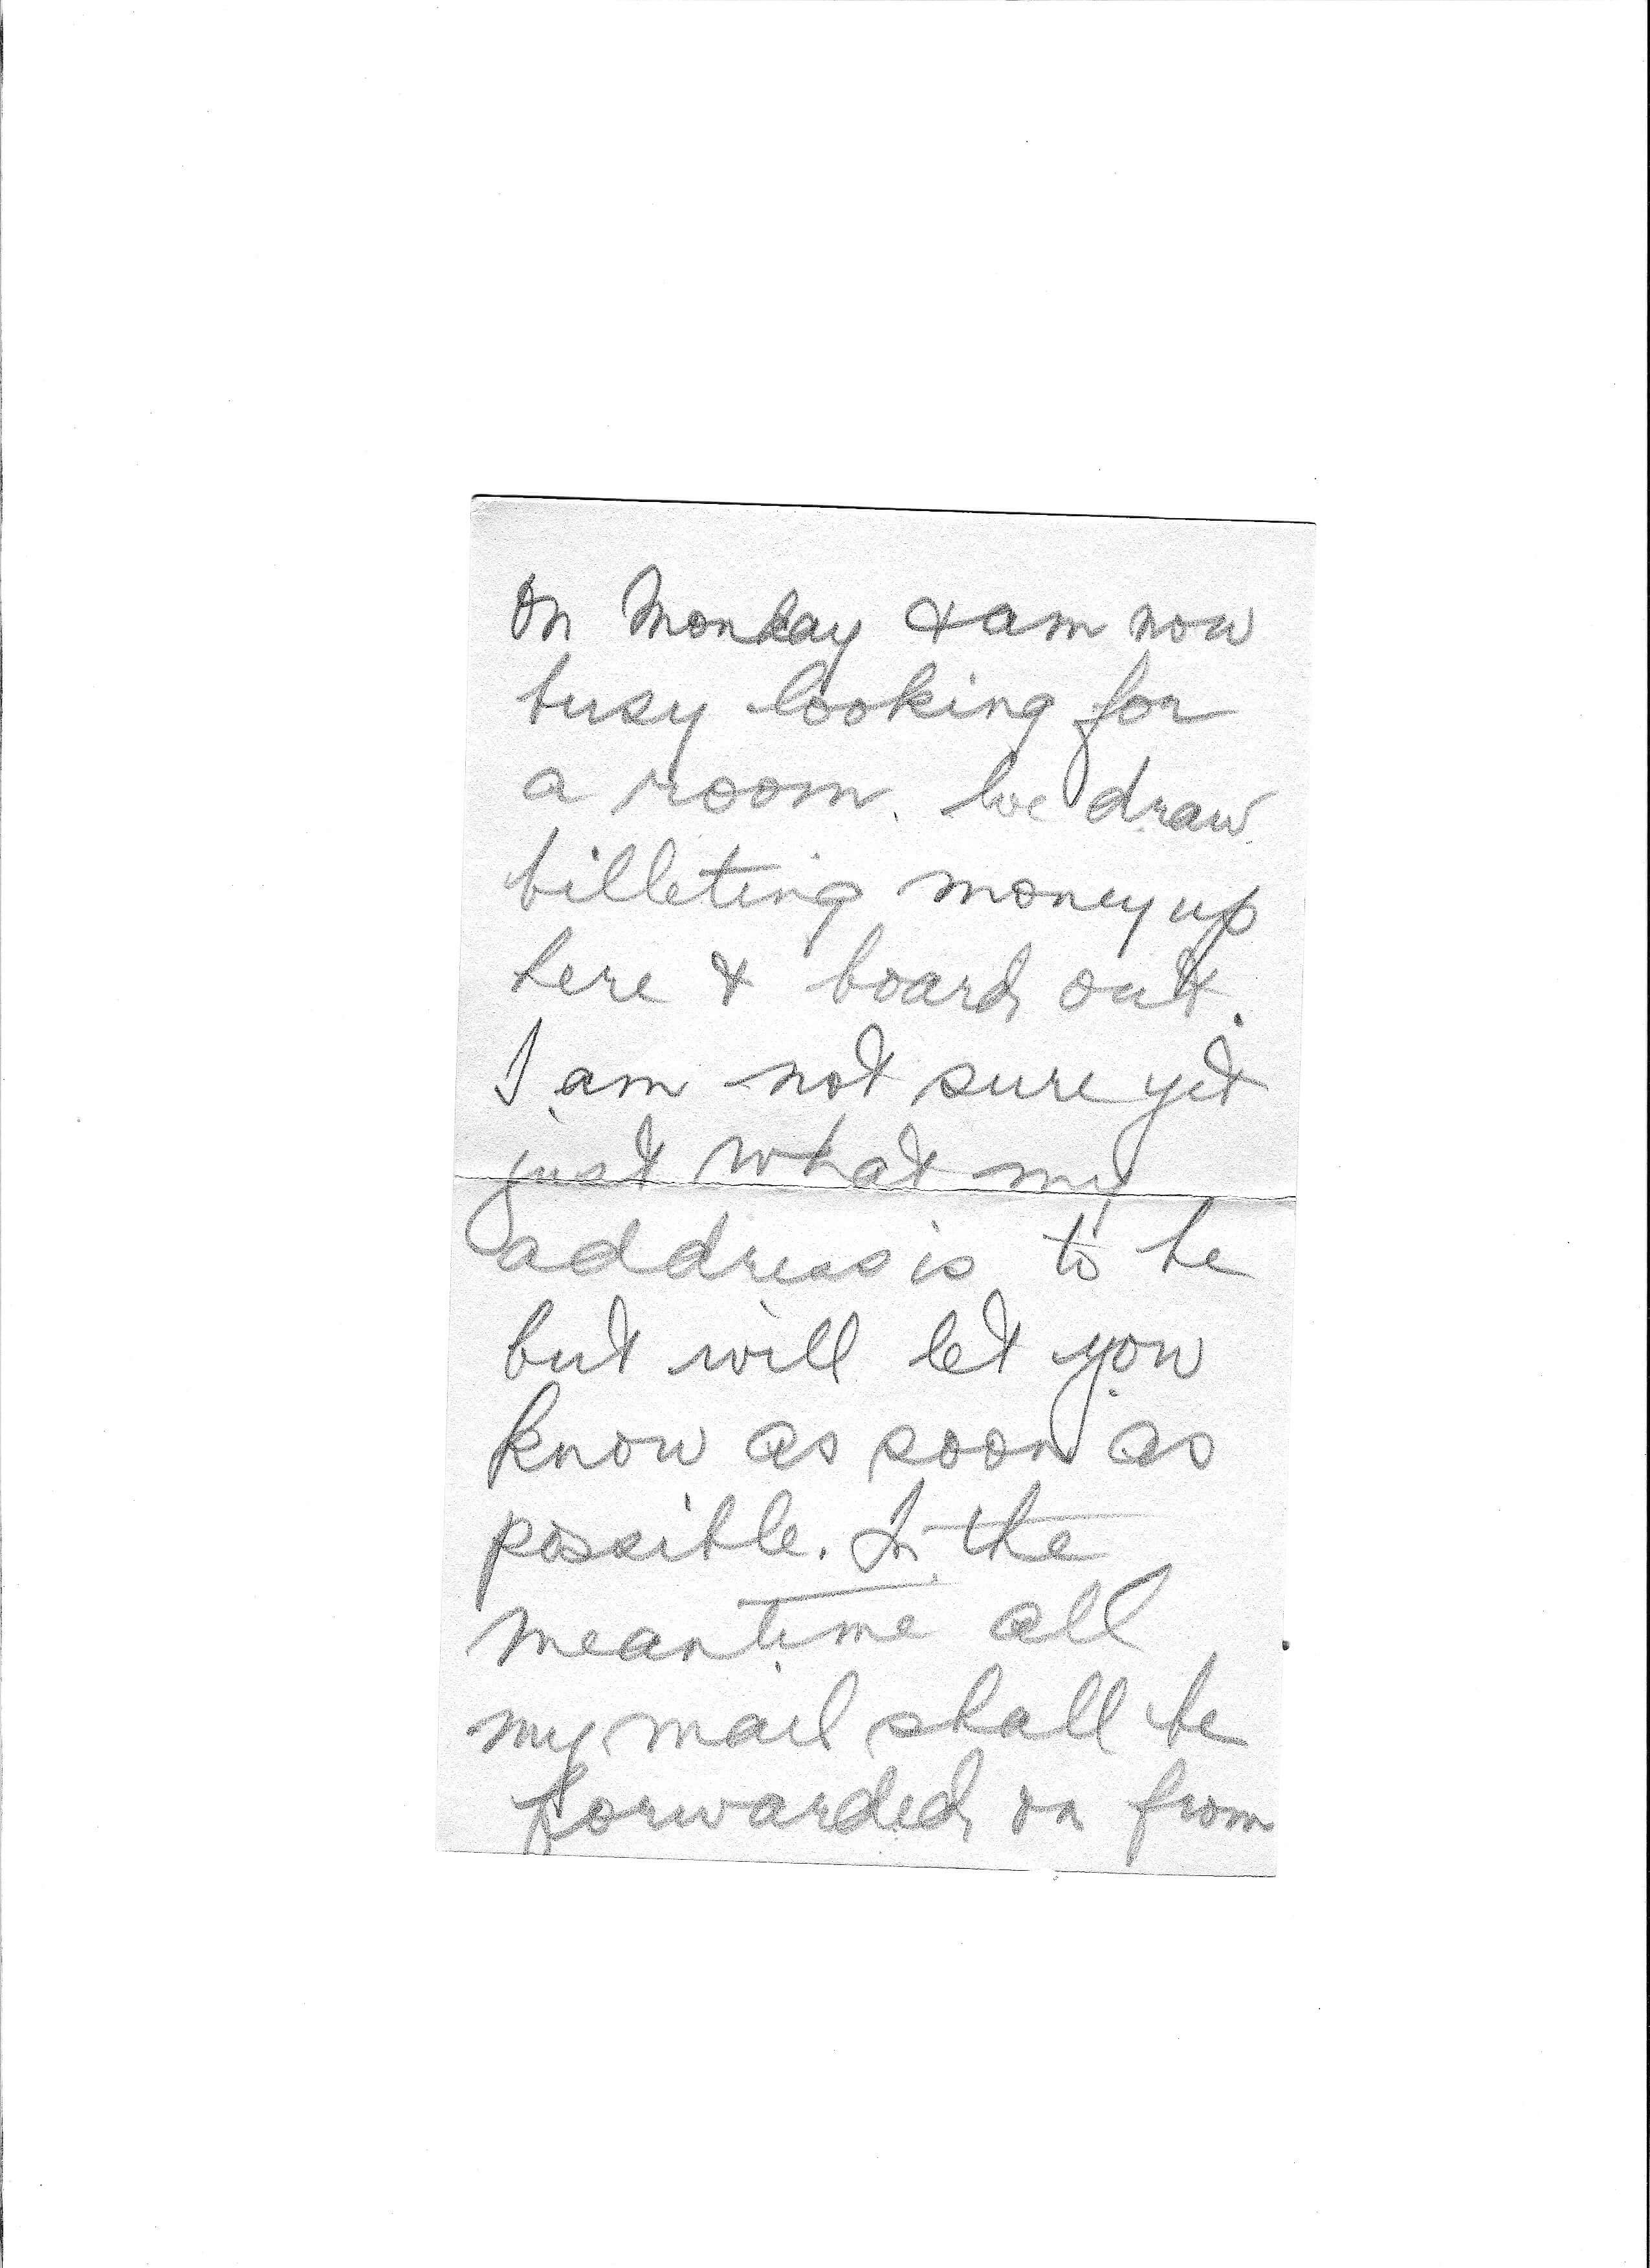 On Monday & am now
busy looking for
a room. We draw
billeting money up
here & board out.
I am not sure yet
just what my
address is to be
but will let you
know as soon as
possible. In the
meantime all
my mail shall be
forwarded on from